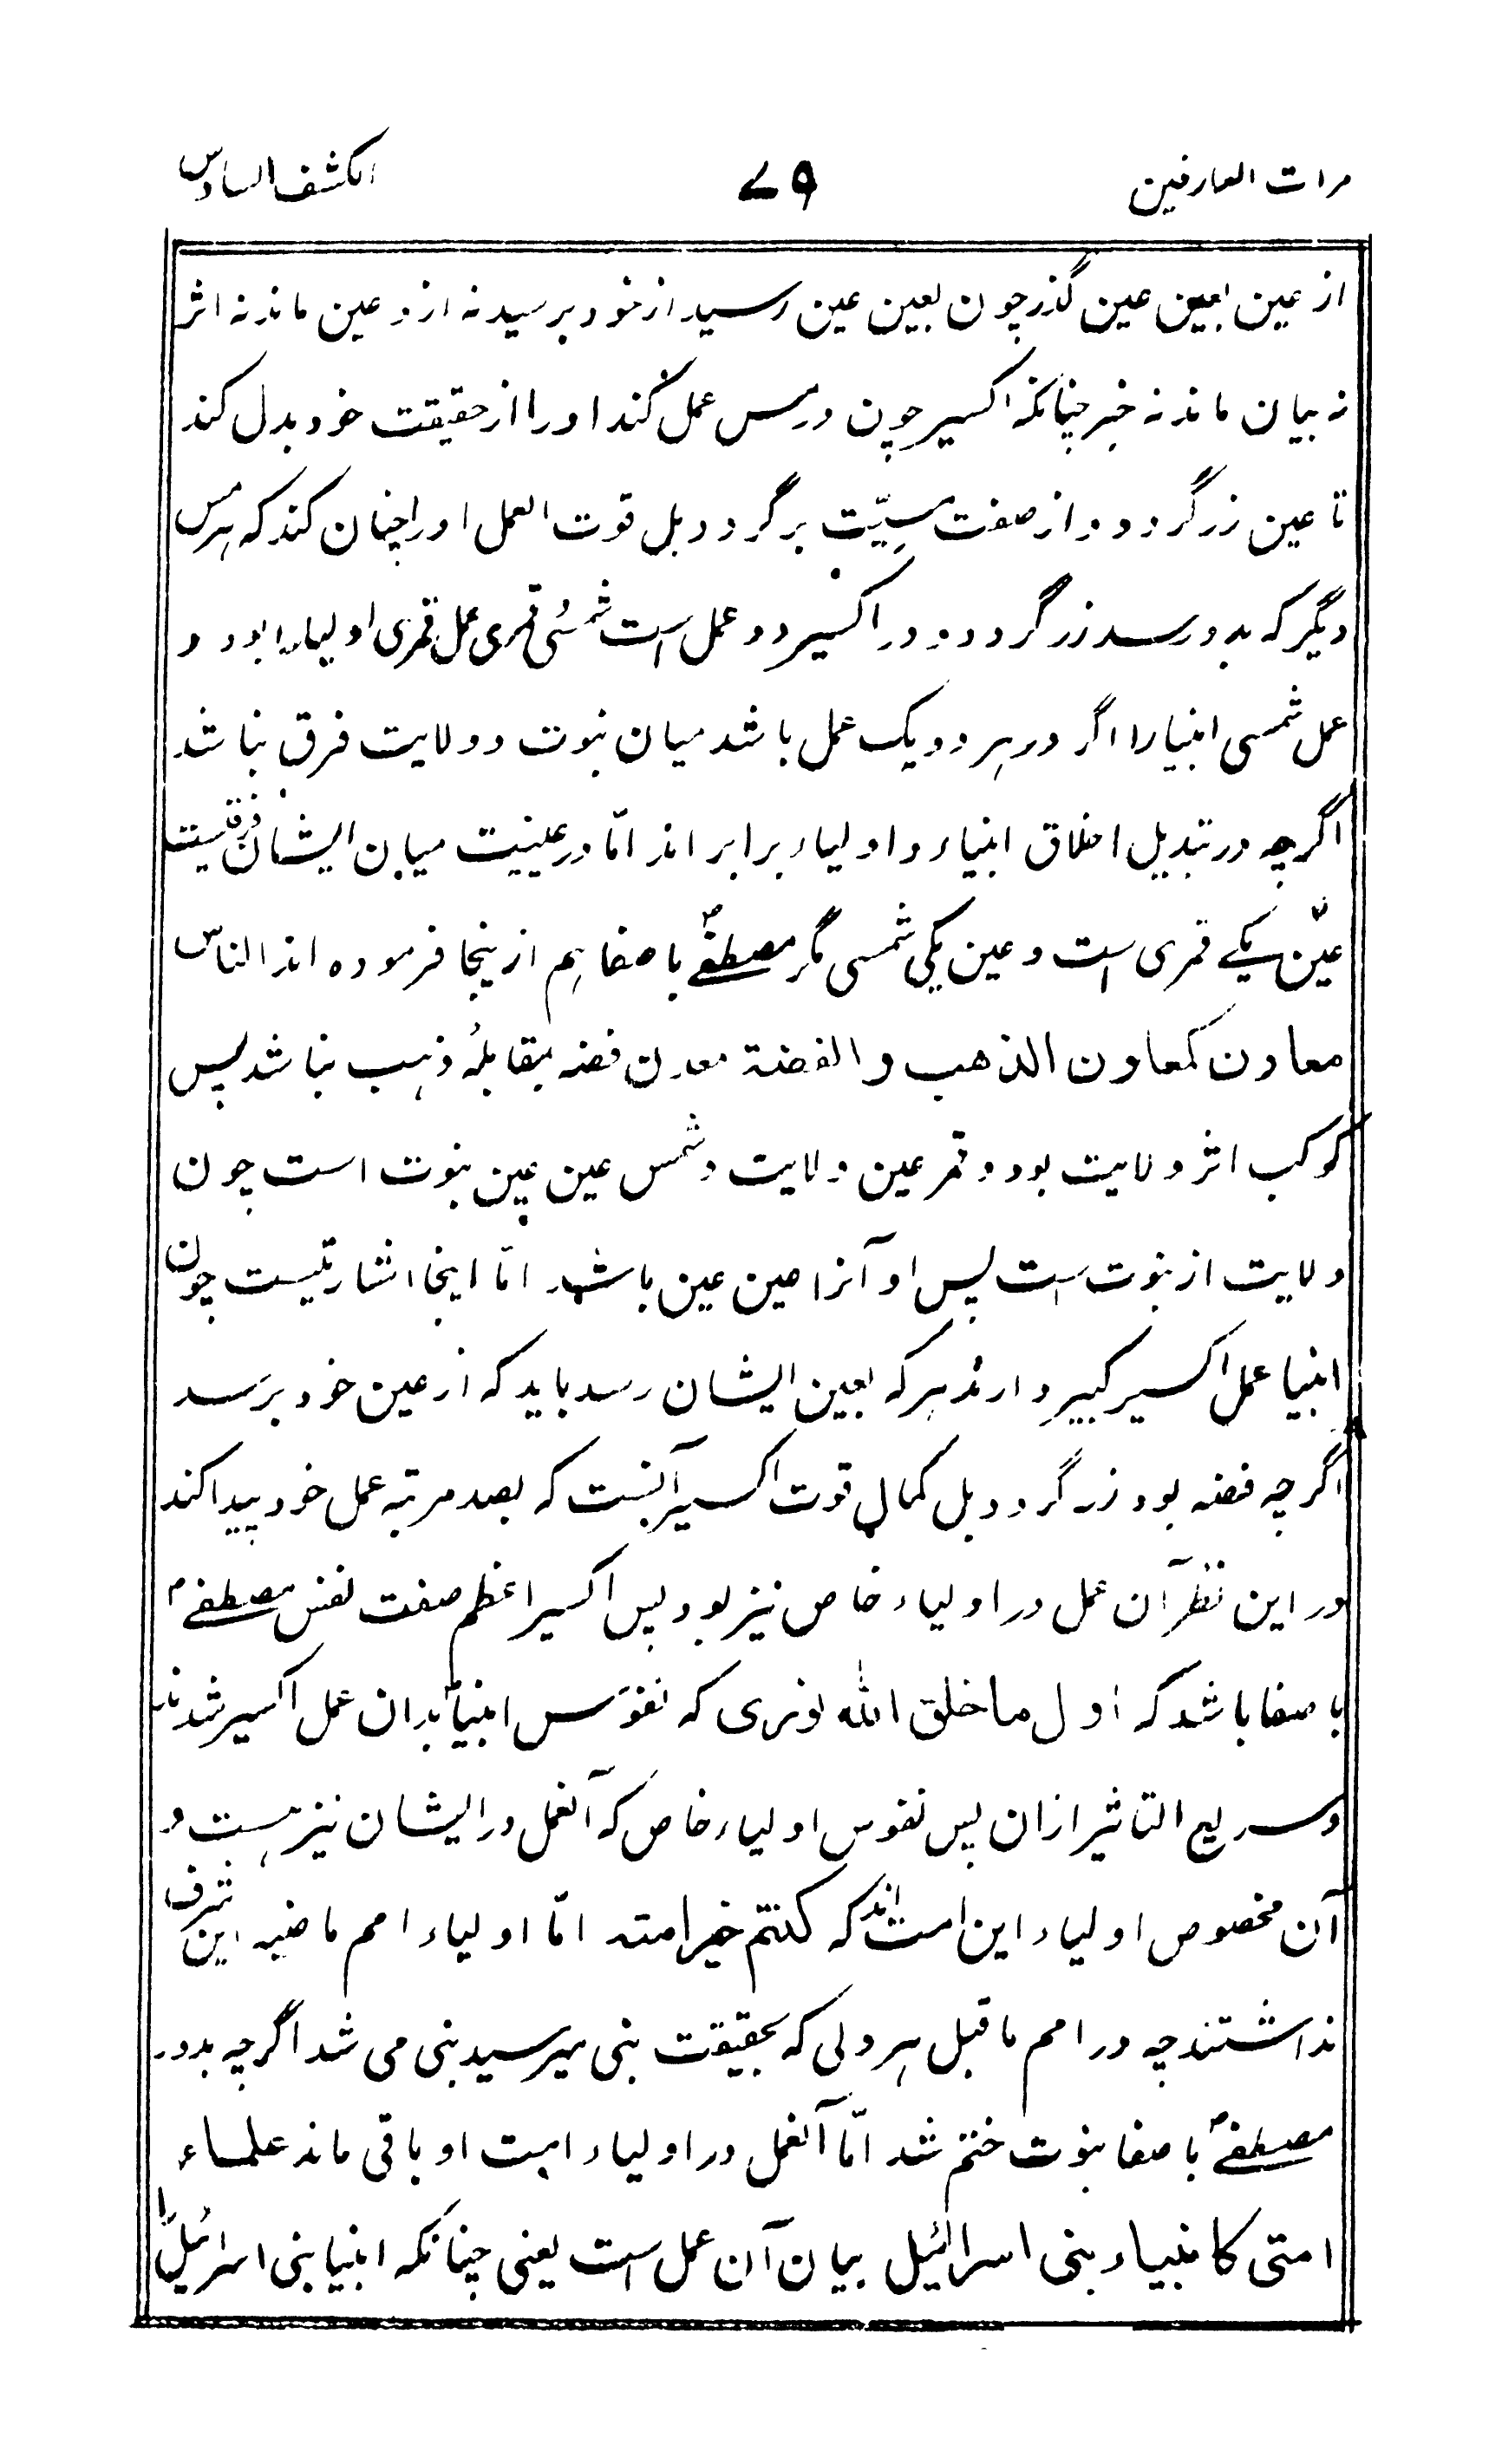 مرات العارفین ۷۹ الکشف السادس
از عین بعین عین گذر چون بعین عین رسید از خود برسید نه ازو عین ماند نه اثر
نه بیان ماند نه خبر چنانکه اکسیر چون در مس عمل کند او را از حقیقت خود بدل کند
تا عین زر گردد و از صفت مسِیّت برگردد بل قوت العمل او را چنان کند که هر مس
دیگر که بدو رسد زر گردد و در اکسیر دو عمل است شمسی و قمری عمل قمری اولیا را بود و
عمل شمسی انبیا را اگر در هر دو یک عمل باشد میان نبوت و ولایت فرق نباشد
اگرچه در تبدیل اخلاق انبیاء و اولیاء برابر اند امّا در عینیت میان ایشان فرقیست
عین یکے قمری است و عین یکی شمسی مگر مصطفےٰ ص با صفا هم ازینجا فرموده اند الناس
معادن کمعادن الذهب و الفضة معدن فضه بمقابلهٔ ذهب نباشد پس
کوکب اثر ولایت بود و قمر عین ولایت و شمس عین عین نبوت است چون
ولایت از نبوت است پس او آنرا عین عین باشد امّا اینجا اشارتیست چون
انبیا عمل اکسیر کبیر دارند هر که بعین ایشان رسد باید که از عین خود برسد
اگرچه فضه بود زر گردد بل کمال قوت اکسیر آنست که بصد مرتبه عمل خود پیدا کند
در این نظر آن عمل در اولیاء خاص نیز بود پس اکسیر اعظم صفت نفس مصطفےٰ ص
با صفا باشد که اول ما خلق الله نوری که نفوس انبیا بدان عمل اکسیر شدند
و سریع التاثیر ازان پس نفوس اولیاء خاص که آنعمل در ایشان نیز هست و
آن مخصوص اولیاء این امت اند که کنتم خیر امته امّا اولیاء امم ماضیه این شرف
نداشتند چه در امم ماقبل هر ولی که بحقیقت نبی میرسید نبی می شد اگرچه بدور
مصطفےٰ ص با صفا نبوت ختم شد امّا آنعمل در اولیاء امت او باقی ماند علماء
امتی کانبیاء بنی اسرائیل بیان آن عمل است یعنی چنانکه انبیا بنی اسرائیل را